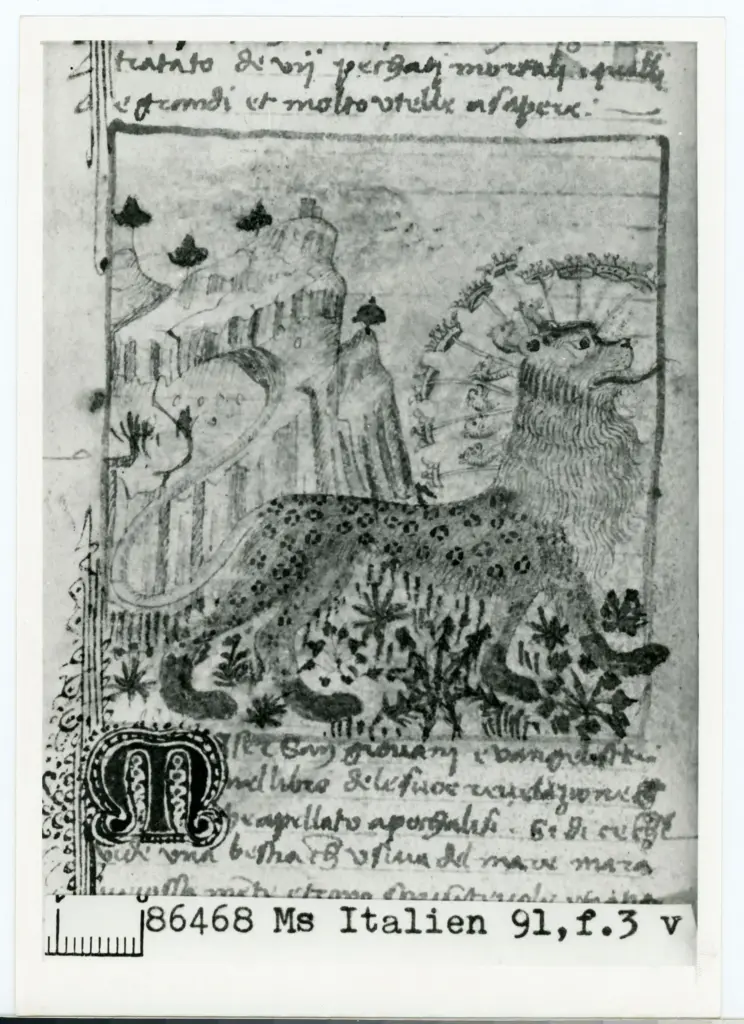 tratato de vij pechatj mortalj equalli
e grandi et molto utelle a sapere.
Mser San giovanj evangelista
nel libro dele sue revelazione
apellato apochalisi. Si di ce che
vide una bestia che usiva del mare mara
86468 Ms Italien 91,f.3 v